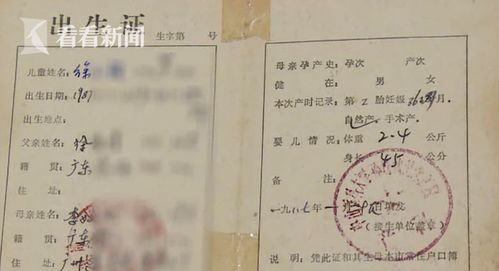 看看新闻
出生证
生字第 号
儿童姓名：徐
出生日期：1987
出生地点：
父亲姓名：徐
籍贯：广东
住址：
母亲姓名：李
籍贯：广东
住址：广州
母亲孕产史：孕次 产次
健在： 男 女
本次产时记录：第2胎妊娠 月。
自然产、手术产。
婴儿情况：体重 2.4 公斤
身长 45 公分
备注：
一九八七年一
（接生单位盖章）
说明：凭此证和其生母本市常住户口簿